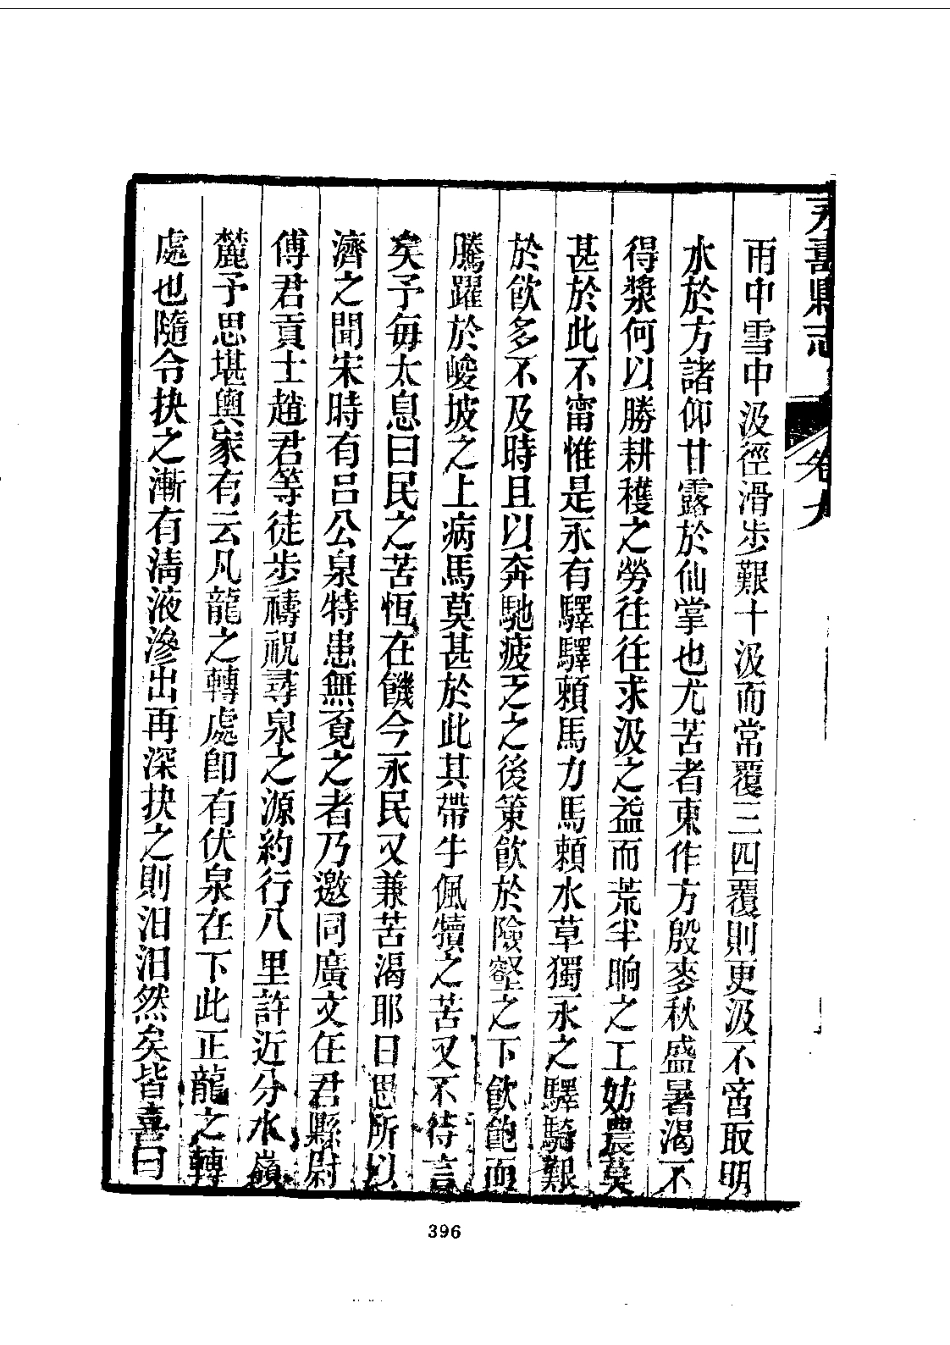 永壽縣志 卷九
雨中雪中汲徑滑步艱十汲而常覆三四覆則更汲不啻取明
水於方諸仰甘露於仙掌也尤苦者東作方殷麥秋盛暑渴不
得漿何以勝耕穫之勞往往求汲之益而荒半晌之工妨農莫
甚於此不甯惟是永有驛驛頼馬力馬頼水草獨永之驛騎艱
於飲多不及時且以奔馳疲乏之後策飲於險壑之下飲飽而
騰躍於峻坡之上病馬莫甚於此其帶牛佩犢之苦又不待言
矣予每太息曰民之苦恆在饑今永民又兼苦渴耶日思所以
濟之聞宋時有呂公泉特患無覓之者乃邀同廣文任君縣尉
傅君貢士趙君等徒步禱祝尋泉之源約行八里許近分水嶺
麓予思堪輿家有云凡龍之轉處卽有伏泉在下此正龍之轉
處也隨令抉之漸有淸液滲出再深抉之則汨汨然矣皆喜曰
396